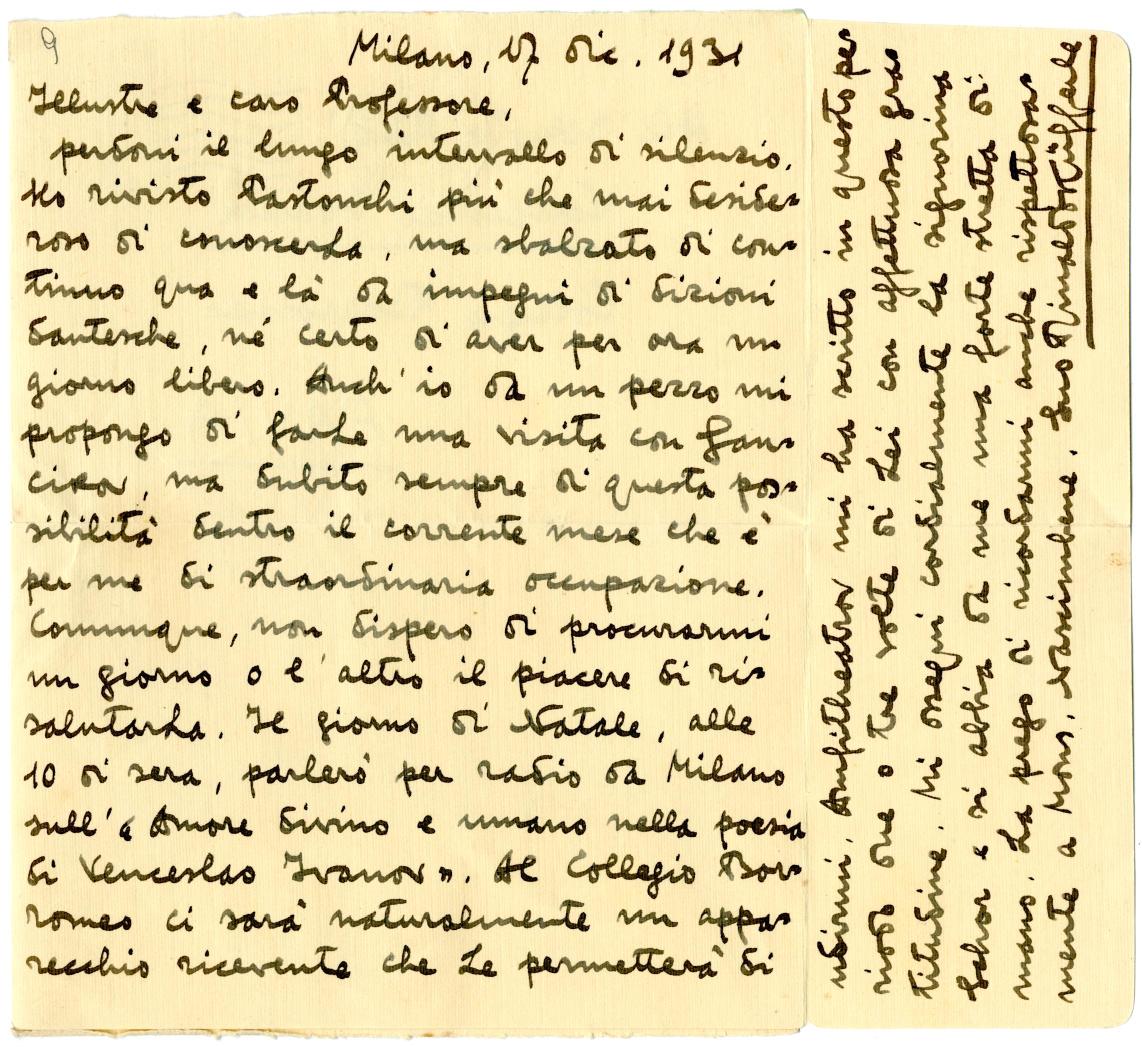 9
Milano, 17 dic. 1931
Illustre e caro Professore,
perdoni il lungo intervallo di silenzio.
Ho rivisto Pastonchi più che mai deside=
roso di conoscerLa, ma sbalzato di con=
tinuo qua e là da impegni di dizioni
dantesche, né certo di aver per ora un
giorno libero. Anch'io da un pezzo mi
propongo di farLe una visita con Gan=
cikov, ma dubito sempre di questa pos=
sibilità dentro il corrente mese che è
per me di straordinaria occupazione.
Comunque, non dispero di procurarmi
un giorno o l'altro il piacere di ri=
salutarLa. Il giorno di Natale, alle
10 di sera, parlerò per radio da Milano
sull'« Amore divino e umano nella poesia
di Venceslao Ivanov ». Al Collegio Bor=
romeo ci sarà naturalmente un appa=
recchio ricevente che Le permetterà di
udirmi. Amfitheatrov mi ha scritto in questo pe=
riodo due o tre volte di Lei con affettuosa gra=
titudine. Mi ossequi cordialmente la signorina
Schor e si abbia da me una forte stretta di
mano. La prego di ricordarmi anche rispettosa=
mente a Mons. Nascimbene. Suo Rinaldo Küfferle